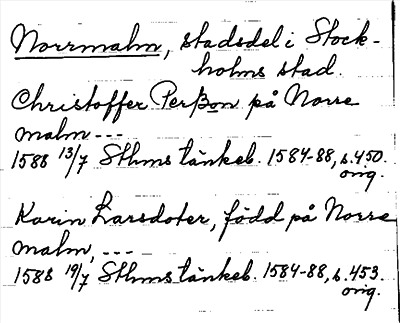 Norrmalm, stadsdel i Stock-
holms stad.
Christoffer Perßon på Norre
malm ---
1588 13/7 Sthms tänkeb. 1584-88, s. 450.
orig.
Karin Larsdoter, född på Norre
malm, ---
1588 19/7 Sthms tänkeb. 1584-88, s. 453.
orig.